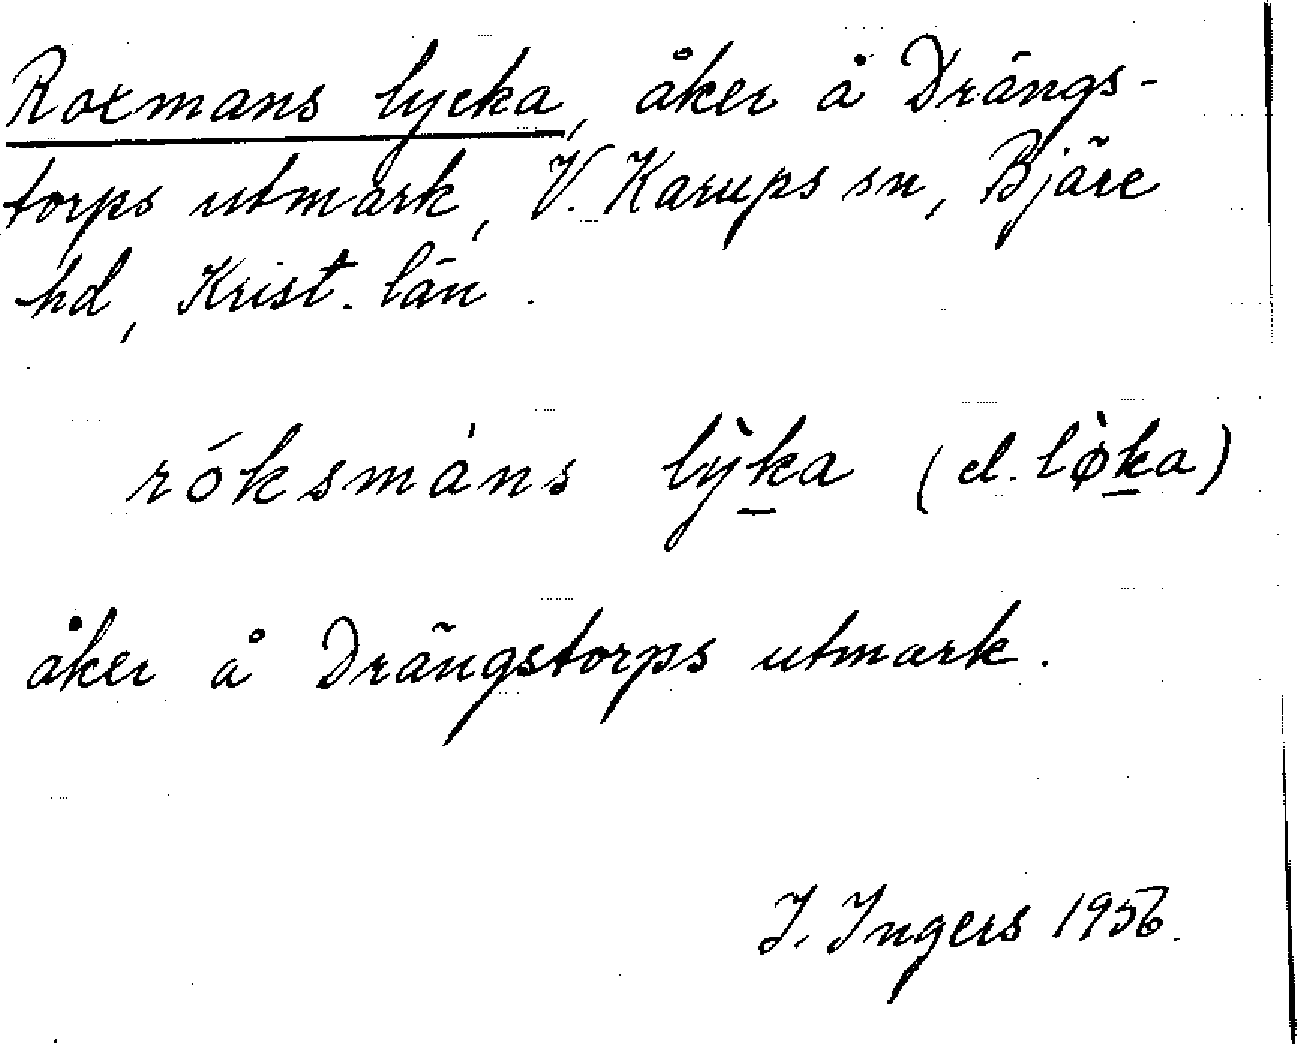 Roxmans lycka, åker å Drängs-
torps utmark, V. Karups sn, Bjäre
hd, Krist. län.
róksmàns lỳk̲a (el. lø̀k̲a)
åker å Drängstorps utmark.
I. Ingers 1956.